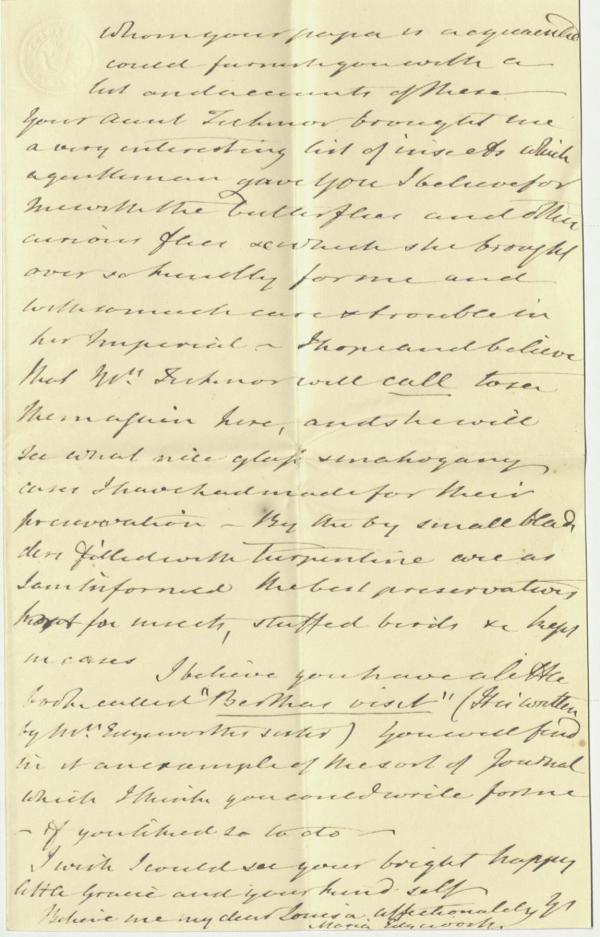 whom your papa is acquainted
could furnish you with a
list and accounts of these —
Your Aunt Ticknor brought me
a very interesting list of insects which
a gentleman gave you I believe for
me with the butterflies and other
curious flies &c which she brought
over so kindly for me and
with so much care & trouble in
her Imperial – I hope and believe
that Mrs Ticknor will call to see
them again here, and she will
see what nice glass & mahogany
cases I have had made for their
preservation – By the by small blad
ders filled with turpentine are as
I am informed the best preservatives
for insects, stuffed birds &c kept
in cases I believe you have a little
book called "Berthas visit" (It is written
by Mrs Edgeworths sister) You will find
in it an example of the sort of Journal
which I think you could write for me
– if you liked so to do –
I wish I could see your bright happy
little Gracie and your kind self
Believe me my dear Louisa affectionately yrs
Maria Edgeworth